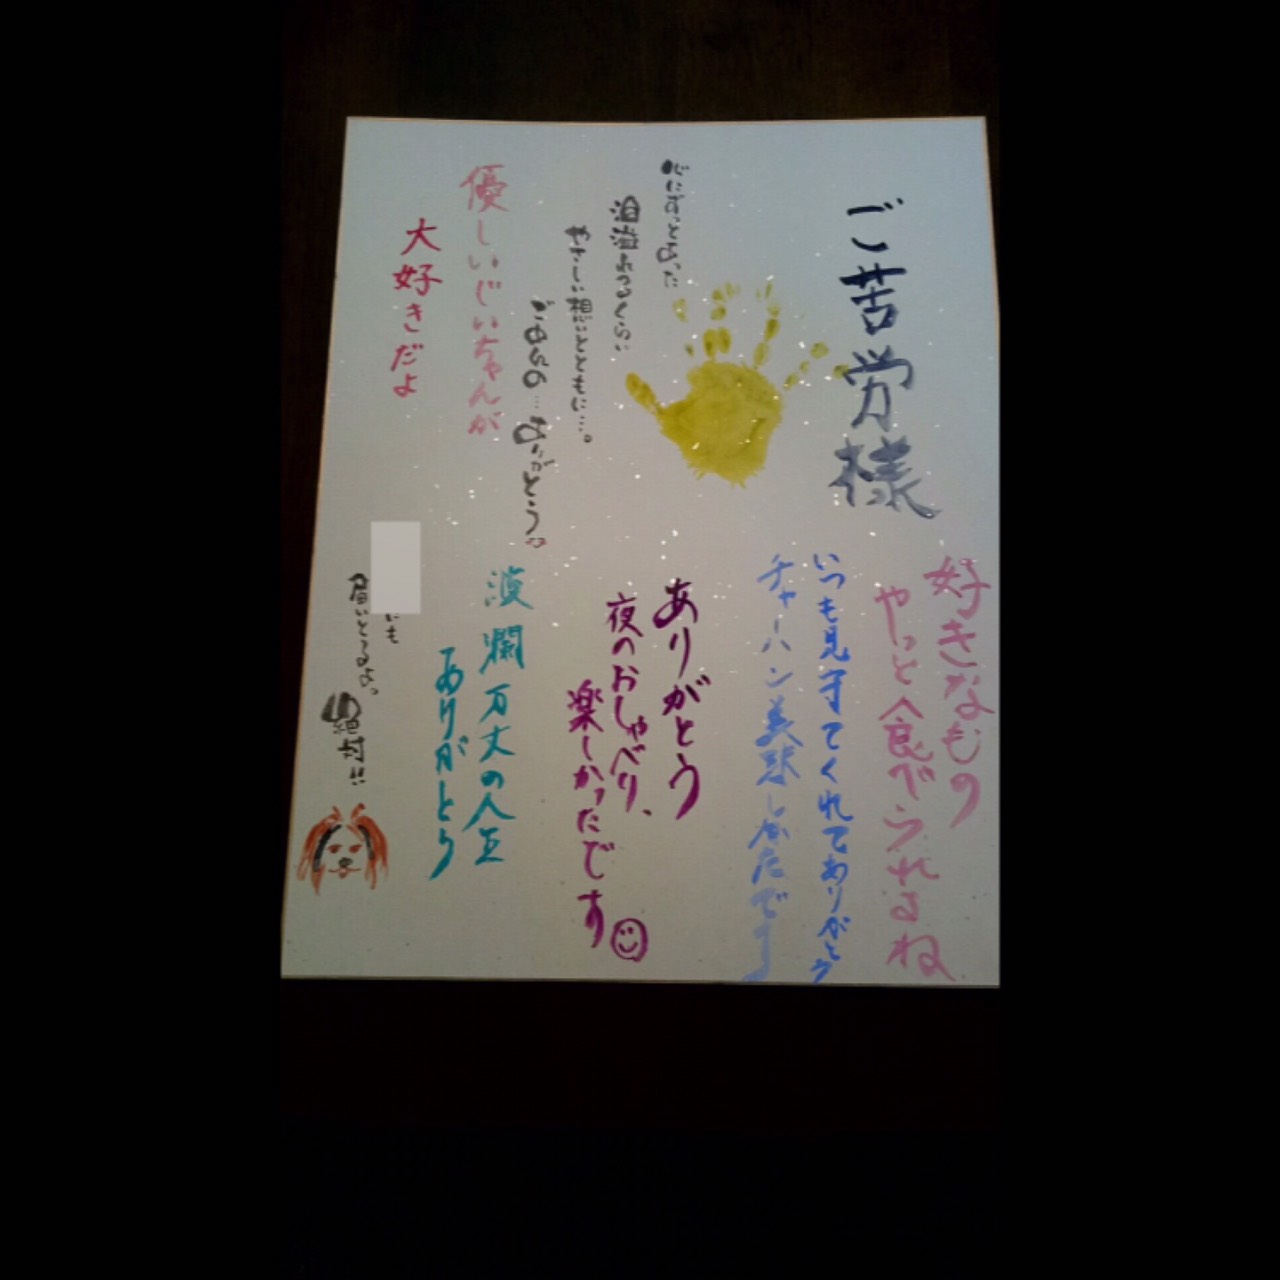 ご苦労様
好きなもの
やっと食べられるね
いつも見守てくれてありがとう
チャーハン美味しかたです
ありがとう
夜のおしゃべり、
楽しかったです
心にずっとあった
泪溢れるくらい
やさしい想いとともに…。
ごめんの…ありがとう
優しいじいちゃんが
大好きだよ
波瀾万丈の人生
ありがとう
いも
届いとるよっ
絶対!!